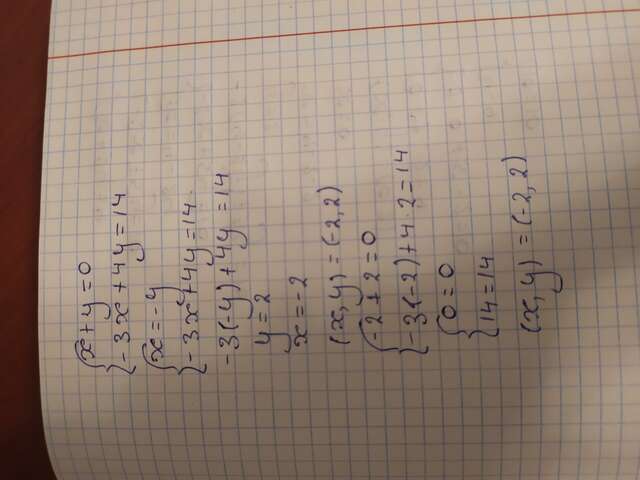 {x+y=0
{-3x+4y=14
{x=-y
{-3x+4y=14.
-3(-y)+4y=14
y=2
x=-2
(x,y)=(-2,2)
{-2+2=0
{-3(-2)+4 2=14
{0=0
{14=14
(x,y)=(-2,2)